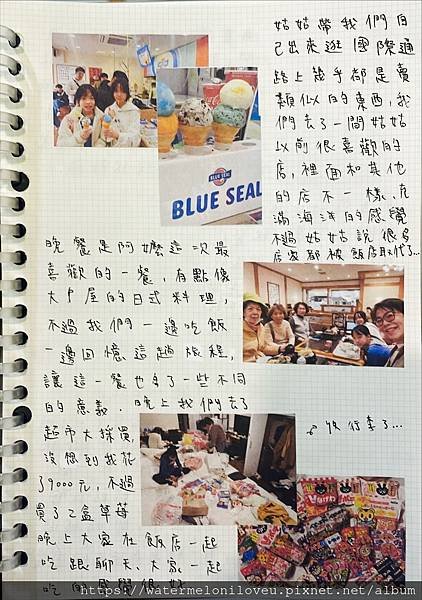 姑姑帶我們自
己出來逛國際通
路上幾乎都是賣
類似的東西,我
們去了一間姑姑
以前很喜歡的
店,裡面和其他
的店不一樣,充
滿海洋的感覺
不過姑姑說很多
店家都被飯店取代了...
BLUE SEAL
BLUE SEAL
晚餐是阿嬤這次最
喜歡的一餐,有點像
大戶屋的日式料理,
不過我們一邊吃飯
一邊回憶這趟旅程,
讓這一餐也多了一些不同
的意義.晚上我們去了
超市大採買,
沒想到我花
了9000元,不過
買了2盒草莓
晚上大家在飯店一起
吃跟聊天、大家一起
吃的感覺很好
收行李了...
https://watermeloniloveu.pixnet.net/album